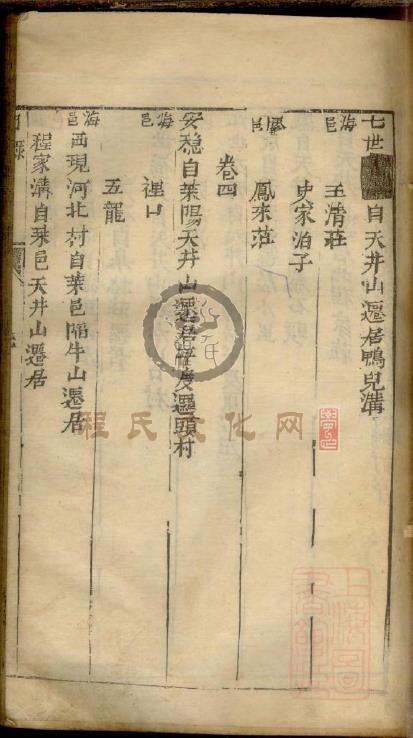 七世 自天井山遷居鴨兒溝
海邑 王清莊
史家泊子
邑 鳳來莊
卷四
安穩自萊陽天井山遷居 度邊頭村
海邑 裡口
五龍
海邑 西現河北村自萊邑隔牛山遷居
程家溝自萊邑天井山遷居
程氏文化网